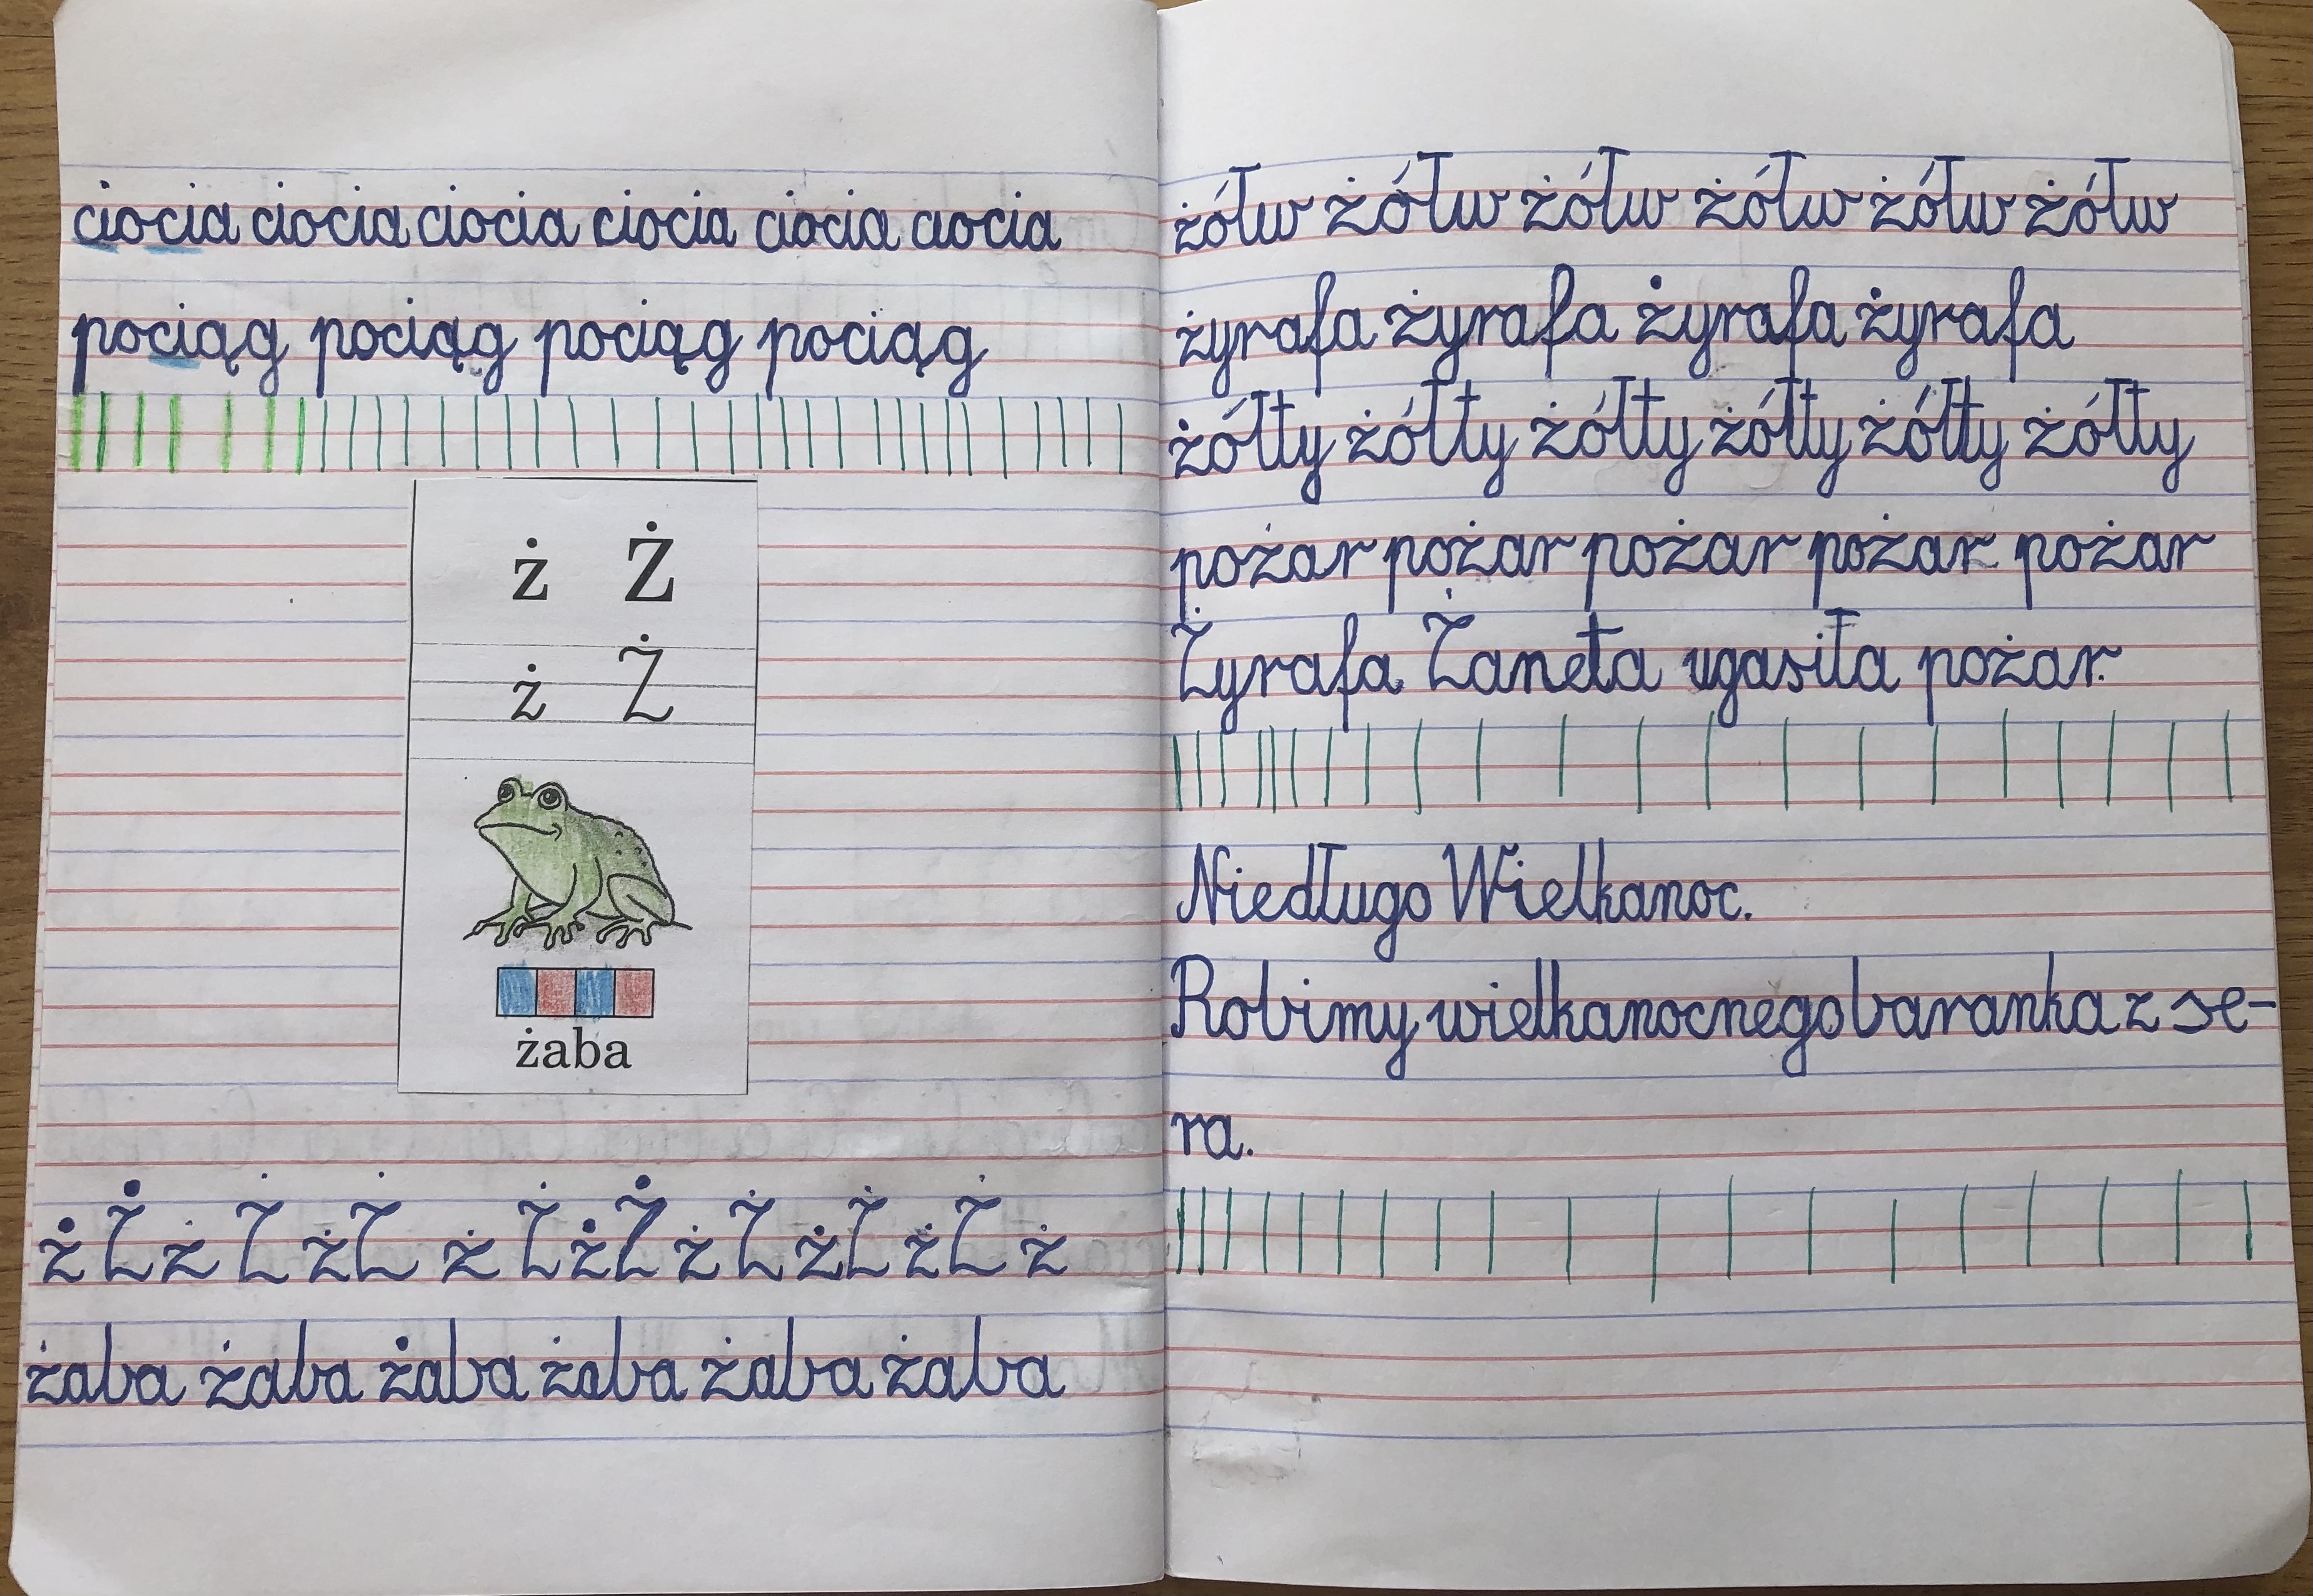 ciocia ciocia ciocia ciocia ciocia ciocia
pociąg pociąg pociąg pociąg
ż Ż
ż Ż
żaba
ż Ż ż Ż ż Ż ż Ż ż Ż ż Ż ż Ż ż Ż ż
żaba żaba żaba żaba żaba żaba
żółw żółw żółw żółw żółw żółw
żyrafa żyrafa żyrafa żyrafa
żółty żółty żółty żółty żółty żółty
pożar pożar pożar pożar pożar
Żyrafa Żaneta ugasiła pożar.
Niedługo Wielkanoc.
Robimy wielkanocnego baranka z se-
ra.